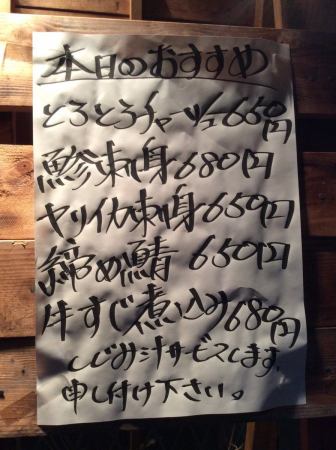 本日のおすすめ
とろとろチャーシュー660円
鯵刺身680円
ヤリイカ刺身650円
締め鯖 650円
牛すじ煮込み680円
しじみ汁サービスします。
申し付け下さい。